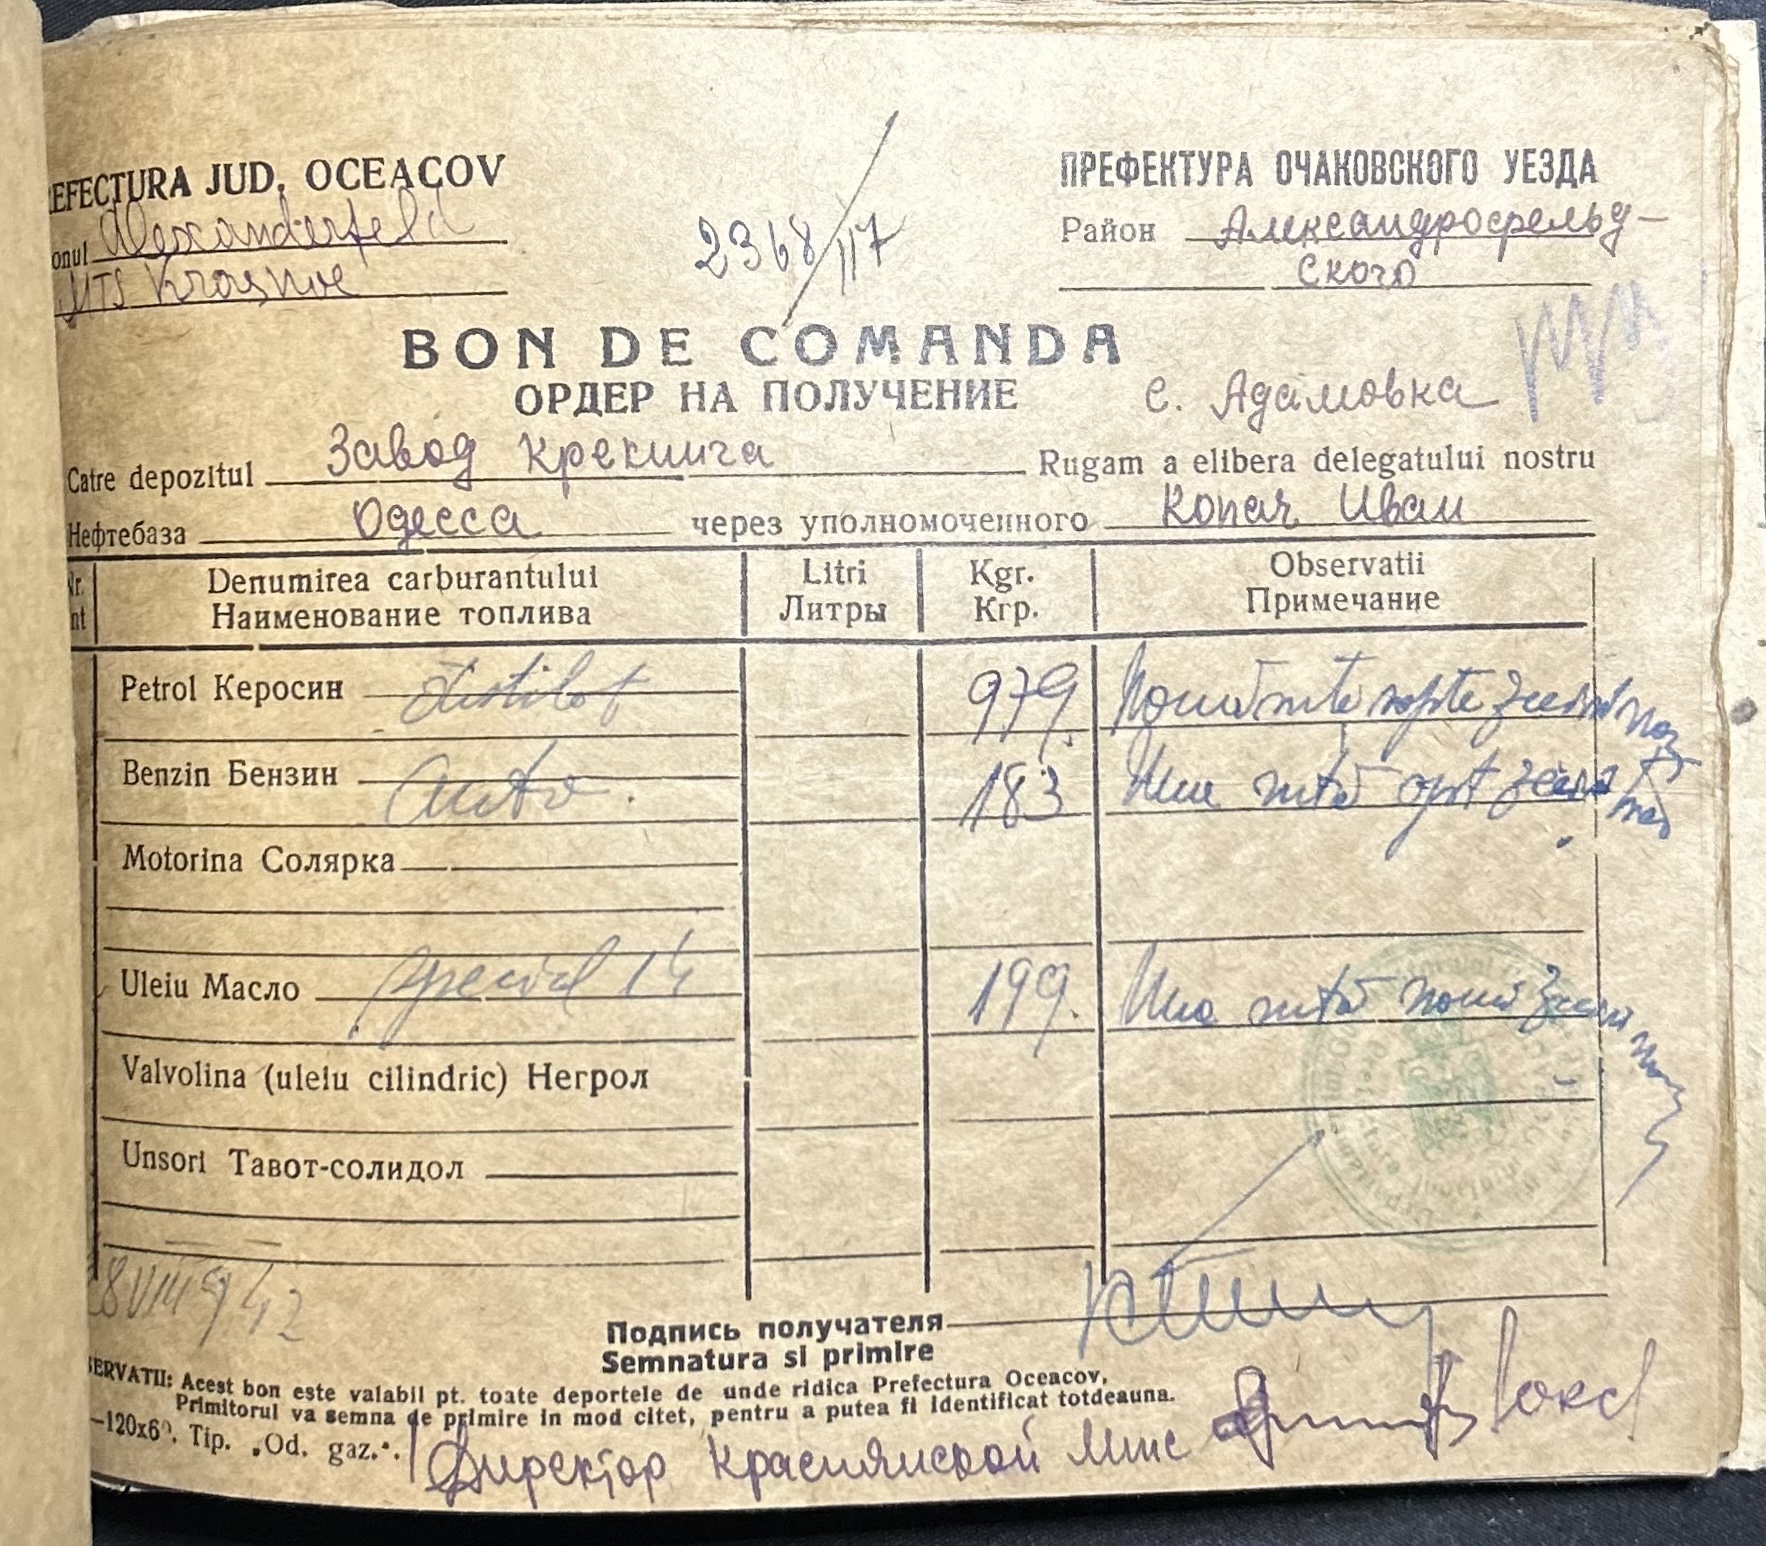 EFECTURA JUD. OCEACOV
ПРЕФЕКТУРА ОЧАКОВСКОГО УЕЗДА
onul Alexanderfeld
2368/117
Район Александрофельд-
MTS Krasnoe
ского
BON DE COMANDA
ОРДЕР НА ПОЛУЧЕНИЕ
с. Адамовка
Catre depozitul Завод Крекинга Rugam a elibera delegatului nostru
Нефтебаза Одесса через уполномоченного Копач Иван
Nr. Denumirea carburantului Litri Kgr. Observatii
nt Наименование топлива Литры Кгр. Примечание
Petrol Керосин distilat 979. Nouă sute șapte zeci nouă
Benzin Бензин Auto. 183 Una sută opt zeci trei
Motorina Солярка
Uleiu Масло special 14 199. Una sută nouă zeci nouă
Valvolina (uleiu cilindric) Негрол
Unsori Тавот-солидол
28 VIII 942
Подпись получателя
Semnatura si primire
SERVATII: Acest bon este valabil pt. toate deportele de unde ridica Prefectura Oceacov.
Primitorul va semna de primire in mod citet, pentru a putea fi identificat totdeauna.
—120x60. Tip. „Od. gaz.“.
Директор Краснянской Мтс